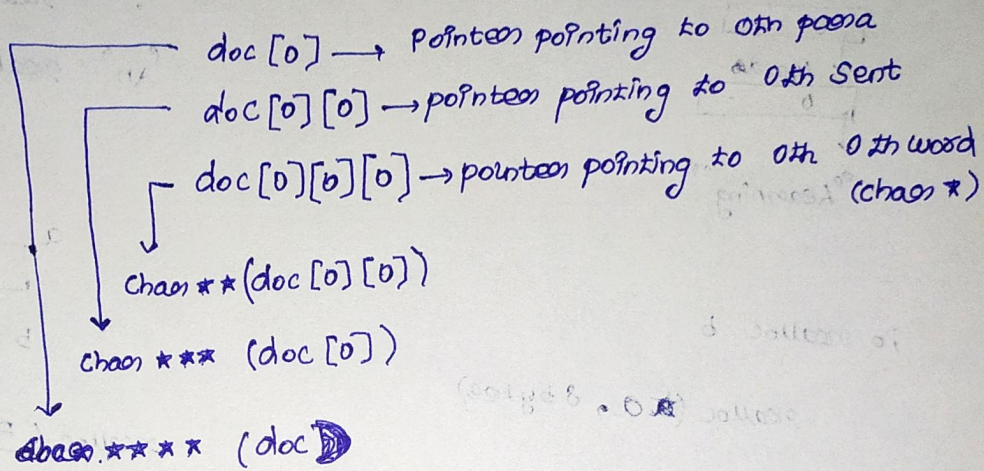 doc [0] → Pointer pointing to 0th para
doc [0] [0] → pointer pointing to 0th Sent
doc [0] [0] [0] → pointer pointing to 0th 0th word
(char *)
Char ** (doc [0] [0])
Char *** (doc [0])
char **** (doc)